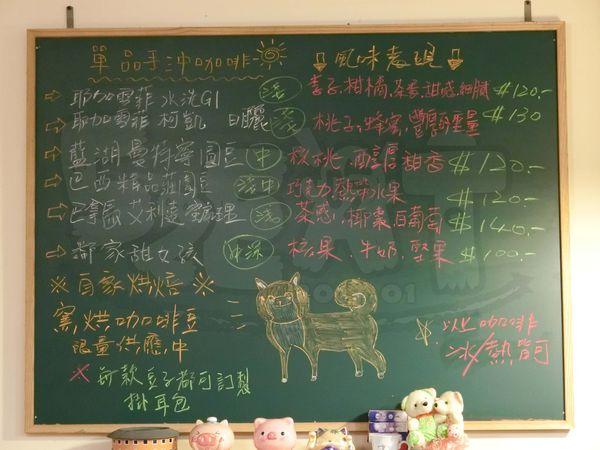 單品手沖咖啡 風味表現
耶加雪菲 水洗G1 淺 柑橘、茶香、甜感、細膩 $120.-
耶加雪菲 柯凱 日曬 淺 桃子、蜂蜜、 $130
藍湖曼特寧圓豆 中 核桃、醇厚甜香 $120.-
巴西精品莊園豆 淺中 巧克力、熱帶水果 $120.-
巴拿馬艾利達蜜處理 淺 茶感、椰棗、白葡萄 $140.-
鄰家甜女孩 中深 核果、牛奶、堅果 $100.-
※自家烘焙※
窯烘咖啡豆
限量供應中
以上咖啡
冰/熱皆可
※每款豆子都可訂製
掛耳包